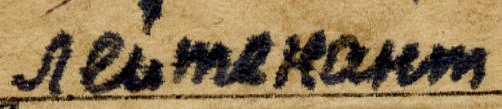 лейтенант